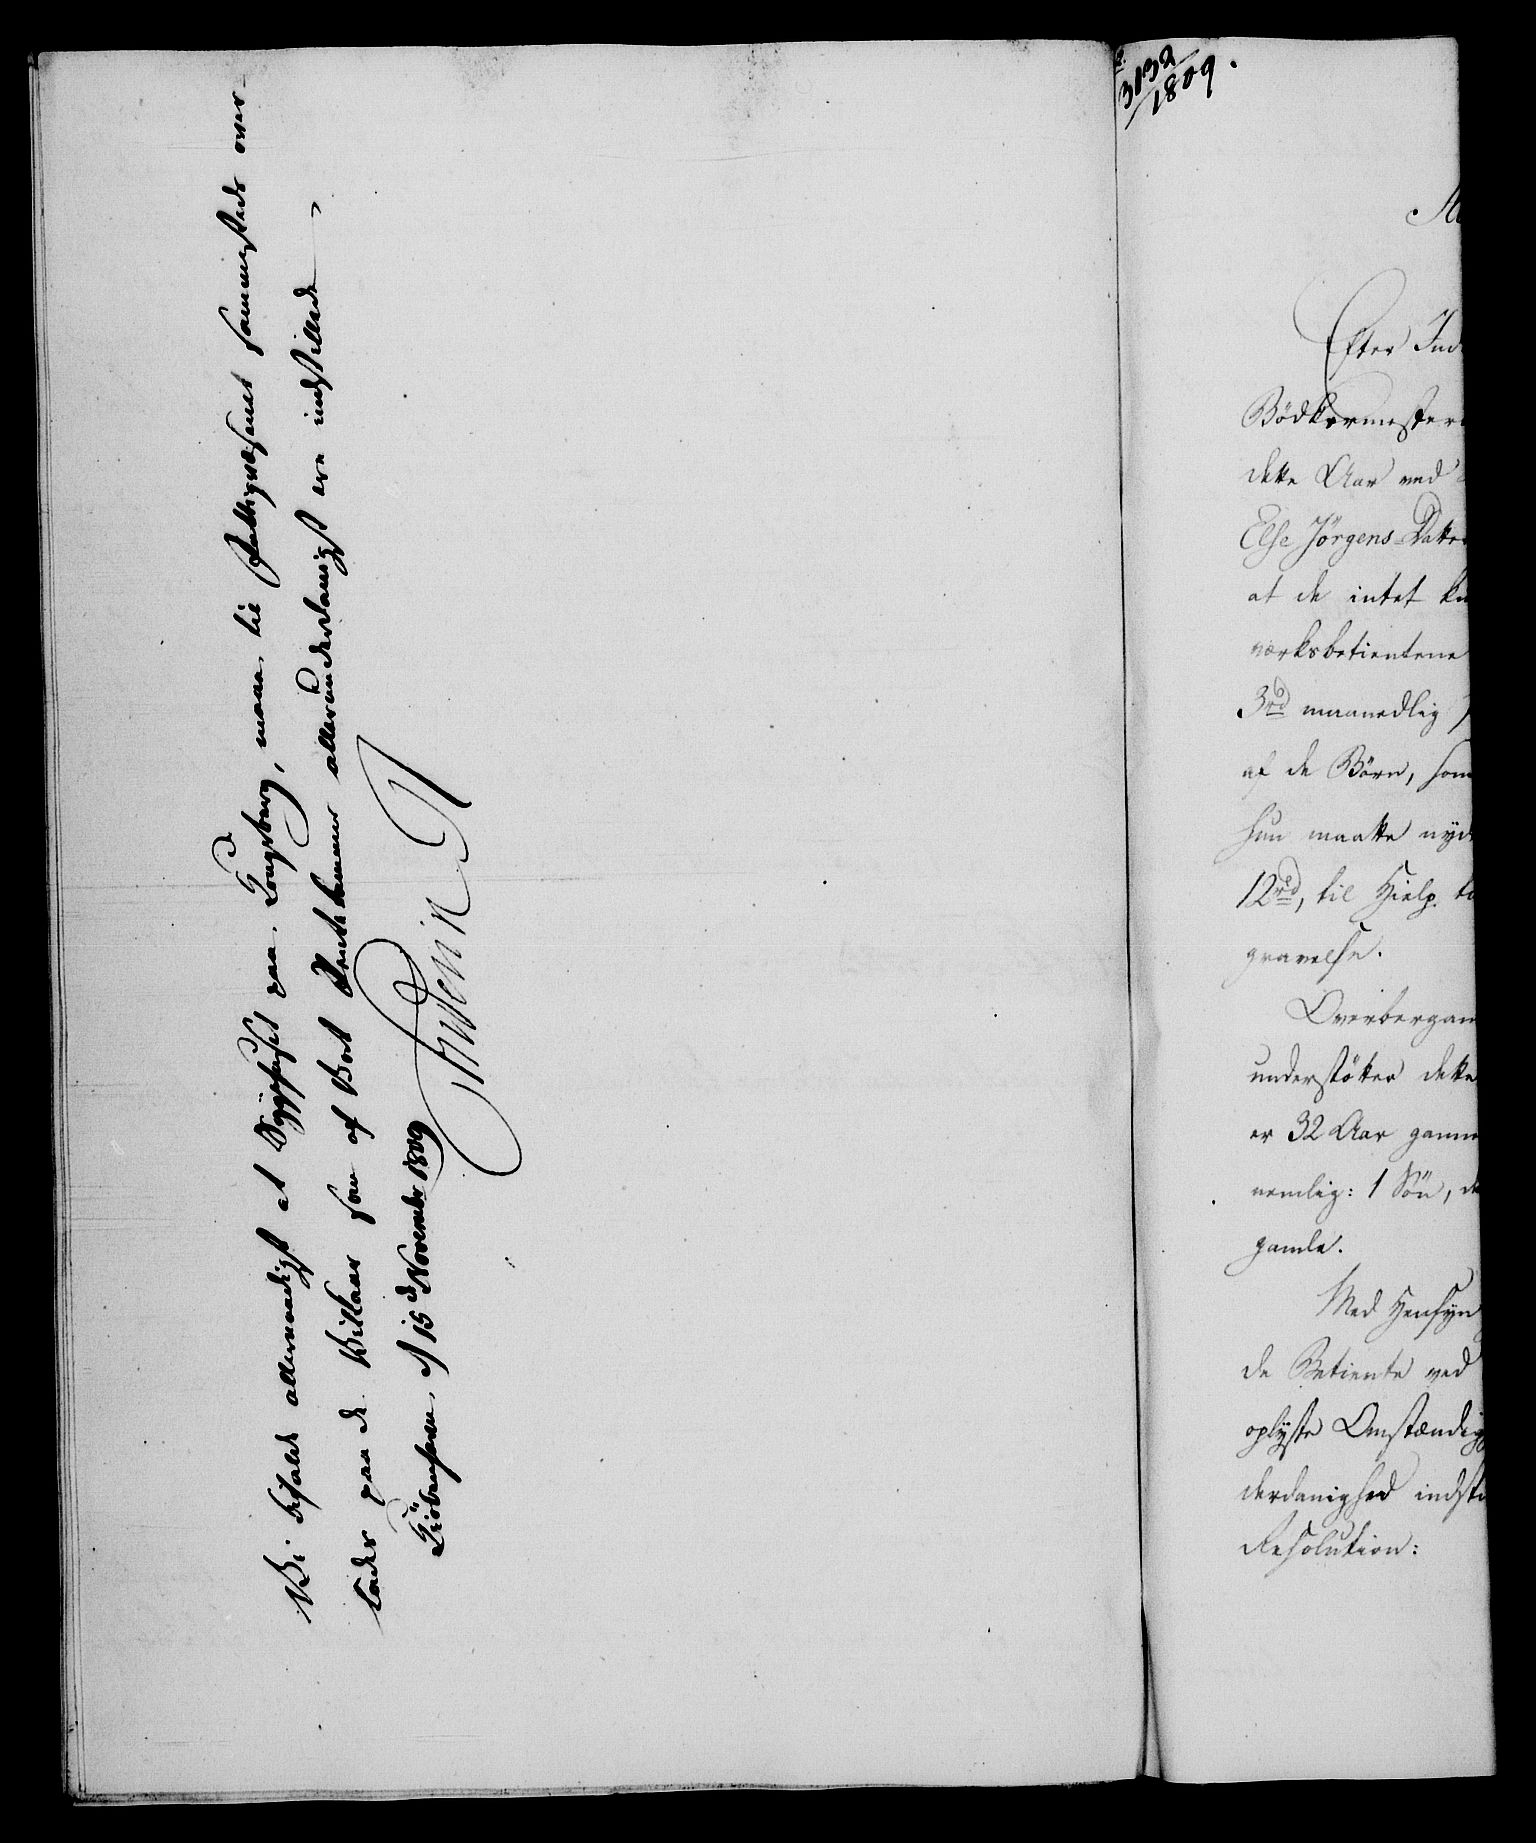 Vi befale allernaadigst at Sygehuset paa Kongsberg, maae til Fattigvæsenet sammesteds over-
lades paa de Vilkaar som af Vort Rentekammer allerunderdanigst ere indstillede
Kiöbenhavn d 15d November 1809
Frederik R
3132/1809.
Efter Ind
Bödkermester
dette Aar ved
Else Jörgens-Datter
at de intet
værksbetientene
3rd maanedlig
af de Börn, som
hun maatte nyde
12rd, til Hielp
gravelse.
Overbergam
understötter dette
er 32 Aar gamm
nemlig: 1 Sön, de
gamle.
Med Hensyn
de Betiente ved
oplyste Omstændig
derdanighed indsti
Resolution: